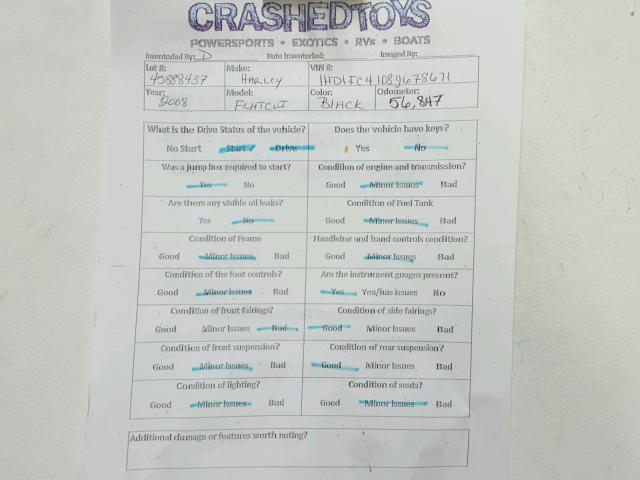 CRASHEDTOYS
POWERSPORTS • EXOTICS • RVs • BOATS
Inventoried By: D Date Inventoried: Imaged By:
Lot #: Make: VIN #:
45888437 HARLEY 1HD1FC41089678671
Year: Model: Color: Odometer:
2008 FLHTCUI BLACK 56,847
What is the Drive Status of the vehicle? Does the vehicle have keys?
No Start Start/ Drive Yes No
Was a jump box required to start? Condition of engine and transmission?
Yes No Good Minor Issues Bad
Are there any visible oil leaks? Condition of Fuel Tank
Yes No Good Minor Issues Bad
Condition of Frame Handlebar and hand controls condition?
Good Minor Issues Bad Good Minor Issues Bad
Condition of the foot controls? Are the instrument guages present?
Good Minor Issues Bad Yes Yes/has issues No
Condition of front fairings? Condition of side fairings?
Good Minor Issues Bad Good Minor Issues Bad
Condition of front suspension? Condition of rear suspension?
Good Minor Issues Bad Good Minor Issues Bad
Condition of lighting? Condition of seats?
Good Minor Issues Bad Good Minor Issues Bad
Additional damage or features worth noting?